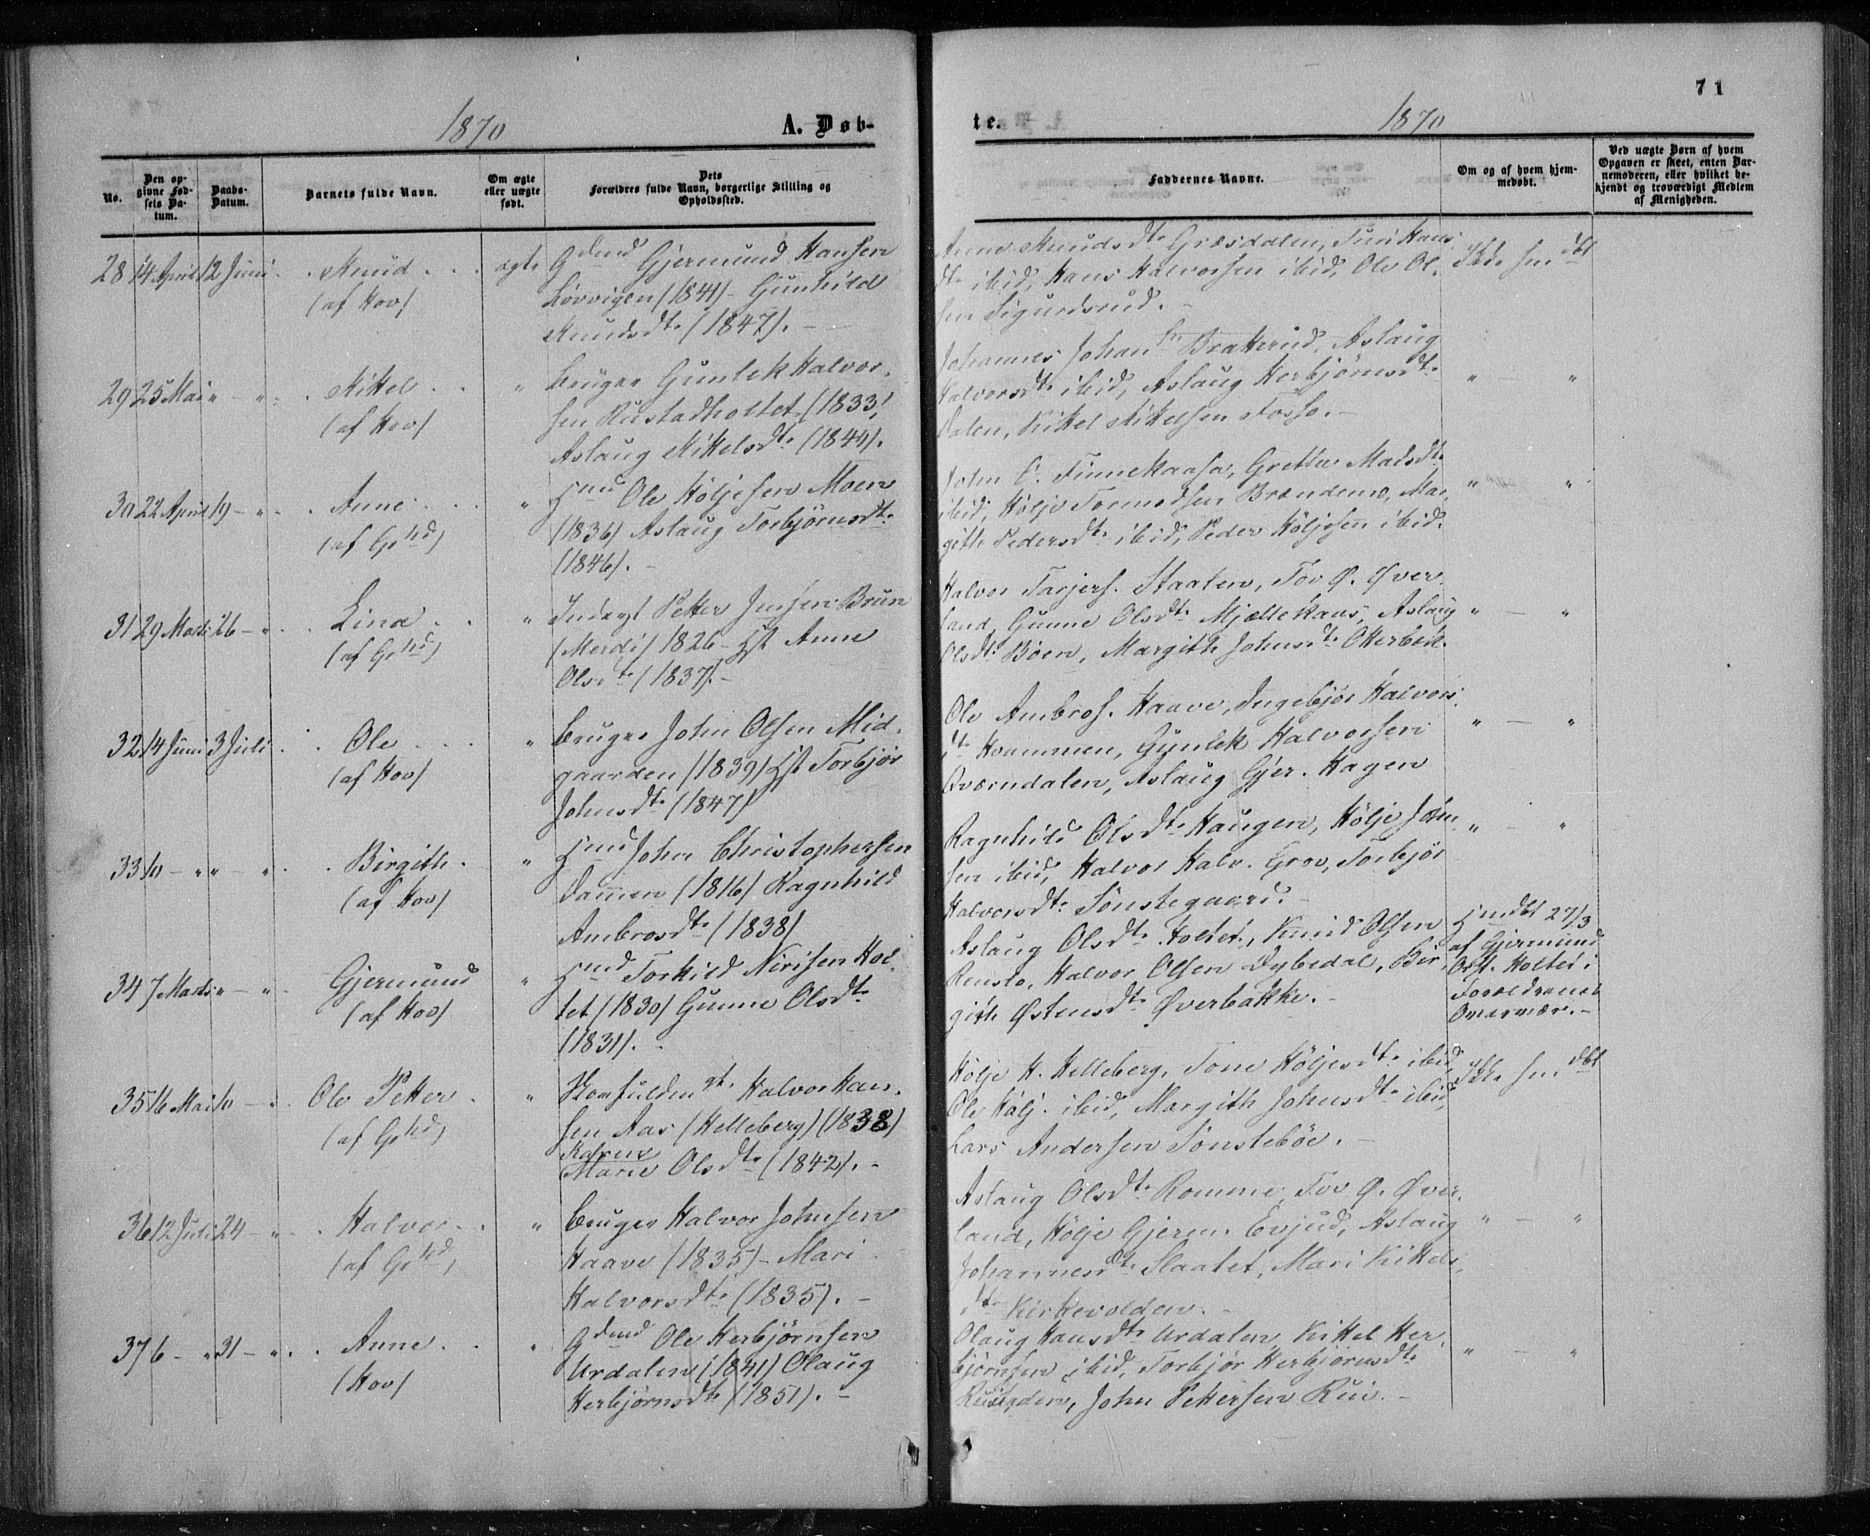 71
1870
A. Døb-
te.
1870
No.
Den op-
givne Fød-
sels Da-
tum.
Daabs-
Datum.
Barnets fulde Navn.
Om ægte
eller uægte
født.
Dets
Forældres fulde Navn, borgerlige Stilling og
Opholdssted.
Faddernes Navne.
Om og af hvem hjem-
medøbt.
Ved uægte Børn af hvem
Opgaven er skeet, enten Bar-
nemoderen, eller hvilket be-
kjendt og troværdigt Medlem
af Menigheden.
28 14 April 12 Juni Knud ægte Gdmd Gjermund Hansen
(af Hov) Løvvigen (1841) - Gunhild
Knudsdtr (1847). -
Anne Knudsdtr Græsdalen, Turi Hans-
dtr ibid, Hans Halvorsen ibid, Ole Ol-
sen Sigurdsrud. -
Ikke hmdbt
29 25 Mai " - " - Kittel " Bruger Gunlek Halvor-
(af Hov) sen Rustadholtet (1833)
Aslaug Kittelsdtr (1844).
Johannes Johansn Brakerud, Aslaug
Halvorsdtr ibid, Aslaug Herbjørnsdtr
Dalen, Kittel Kittelsen Fosso. -
" - "
30 22 April 19 - " - Anne " Hmd Ole Høljesen Moen
(af Grhd) (1836) Aslaug Torbjørnsdtr
(1846). -
John O. Finnekaasa, Grethe Madsdtr
ibid, Hølje Tormodsen Brændemo, Mar-
gith Pedersdtr ibid, Peder Høljesen ibid.
" "
31 29 Marts 26 - " - Lina " Inderst Petter Jensen Brun
(af Grhd) (Merdi) 1826 - Hst Anne
Olsdtr (1837). -
Halvor Tarjers. Staalen, Tov Ø. Øver-
land, Gunne Olsdtr Mjællekaas, Aslaug
Olsdtr Bøen, Margith Johnsdtr Otterbæk.
" - "
32 14 Juni 3 Juli Ole " Bruger John Olsen Mid-
(af Hov) gaarden (1839) Hst Torbjør
Johnsdtr (1847)
Ole Ambros. Haave, Ingebjør Halvors-
dtr Hvammen, Gunlek Halvorsen
Qværndalen, Aslaug Gjer. Hagen
" - "
33 10 - " " - " Birgith " Hmd John Christophersen
(af Hov) Dammen (1816) Ragnhild
Ambrosdtr (1838)
Ragnhild Olsdtr Haugen, Hølje John-
sen ibid, Halvor Halv. Grov, Torbjør
Halvorsdtr Sønstegaard.
" - "
34 7 Marts " - " - Gjermund " Hmd Torkild Nirisen Hol-
(af Hov) tet (1830) Gunne Olsdtr
(1831). -
Aslaug Olsdtr Holtet, Knud Olsen
Rensto, Halvor Olsen Dybedal, Bir-
gith Østensdtr Øverbakke. -
Hmdbt 27/3
af Gjermund
Holtet i
Forældrenes
Overvære. -
35 16 Mai 10 - " Ole Petter " Halvor Han-
(af Grhd) sen Aas (Helleberg) (1838)
Karen
Marie Olsdtr (1842). -
Hølje H. Helleberg, Tone Høljesdtr ibid,
Ole Hølj. ibid, Margith Johnsdtr ibid,
Lars Andersen Sønstebøe. -
Ikke hmdbt
36 12 Juli 24 - " - Halvor " Bruger Halvor Johnsen
(af Grhd) Haave (1835) - Mari
Halvorsdtr (1835). -
Aslaug Olsdtr Romme, Tov Ø. Øver-
land, Hølje Gjerm. Evjud, Aslaug
Johannesdtr Slaatet, Mari Kittels-
dtr Kirkevolden. -
" - "
37 6 - " 31 - " . Anne " Gdmd Ole Herbjørnsen
(Hov) Urdalen (1841) Olaug
Herbjørnsdtr (1851). -
Olaug Hansdtr Urdalen, Kittel Her-
bjørnsen ibid, Torbjør Herbjørnsdtr
John Pettersen Rui. -
" - "